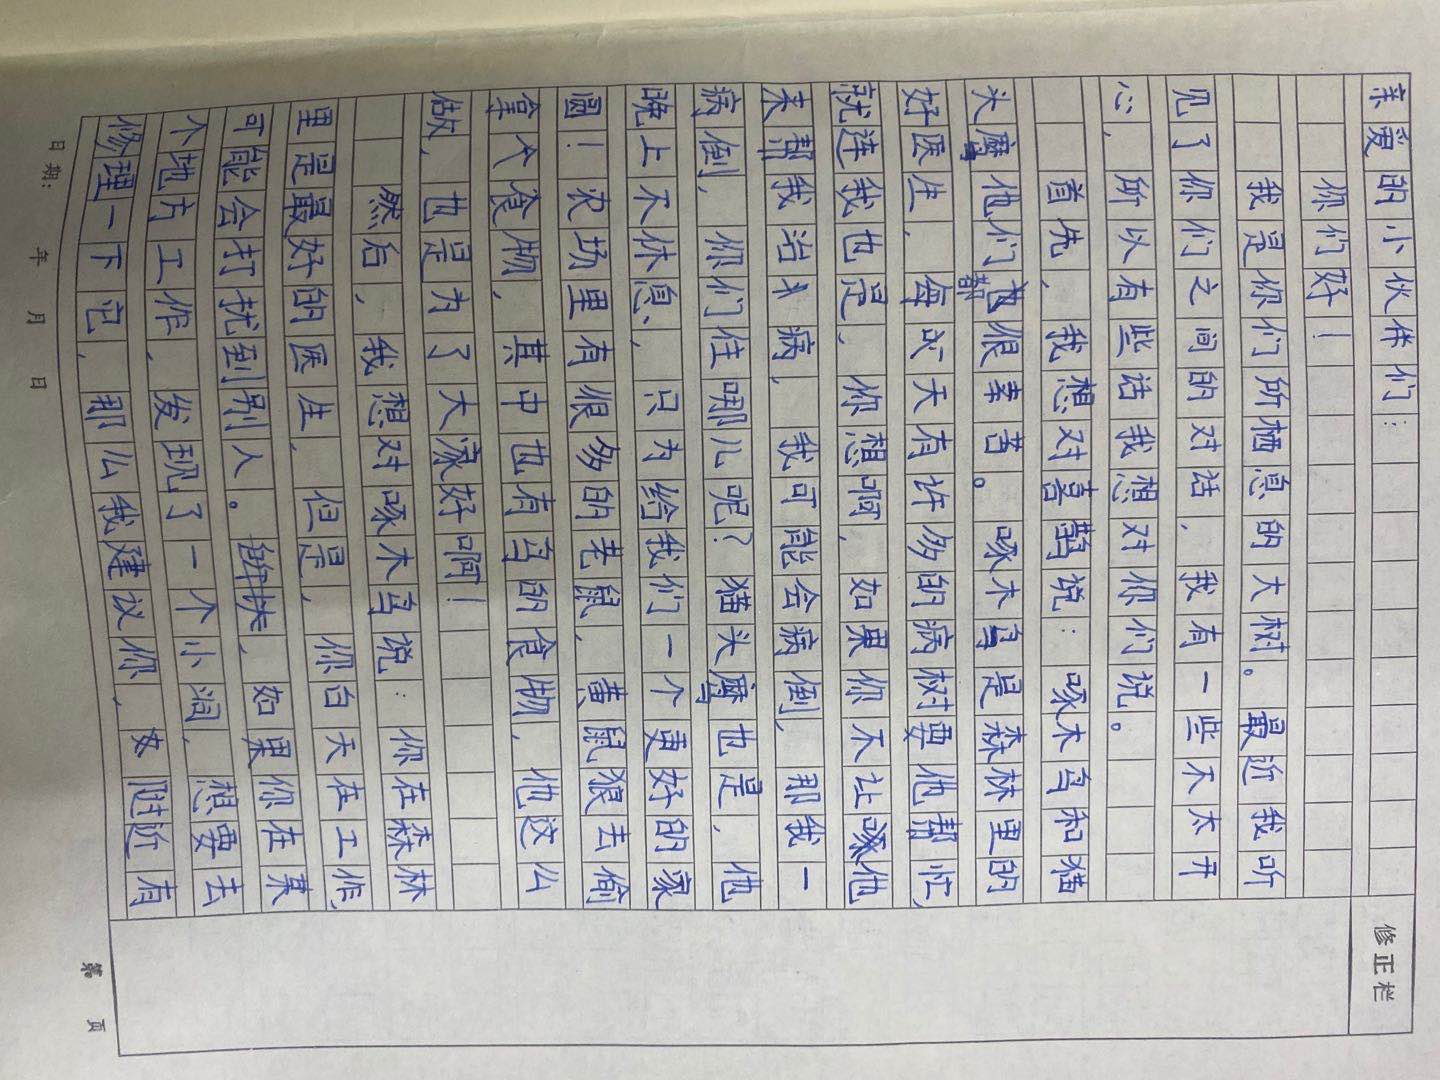 亲爱的小伙伴们：
你们好！
我是你们所栖息的大树。最近我听
见了你们之间的对话，我有一些不太开
心，所以有些话我想对你们说。
首先，我想对喜鹊说：啄木鸟和猫
头鹰他们都很辛苦。啄木鸟是森林里的
好医生，每天有许多的病树要他帮忙，
就连我也是，你想啊，如果你不让啄他
来帮我治病，我可能会病倒，那我一
病倒，你们住哪儿呢？猫头鹰也是，他
晚上不休息，只为给我们一个更好的家
园！农场里有很多的老鼠、黄鼠狼去偷
拿个食物，其中也有鸟的食物，他这么
做，也是为了大家好啊！
然后，我想对啄木鸟说：你在森林
里是最好的医生，但是，你白天在工作，
可能会打扰到别人。如果你在某
个地方工作，发现了一个小洞，想要去
修理一下它，那么我建议你，附近有
修正栏
日期： 年 月 日
第 页